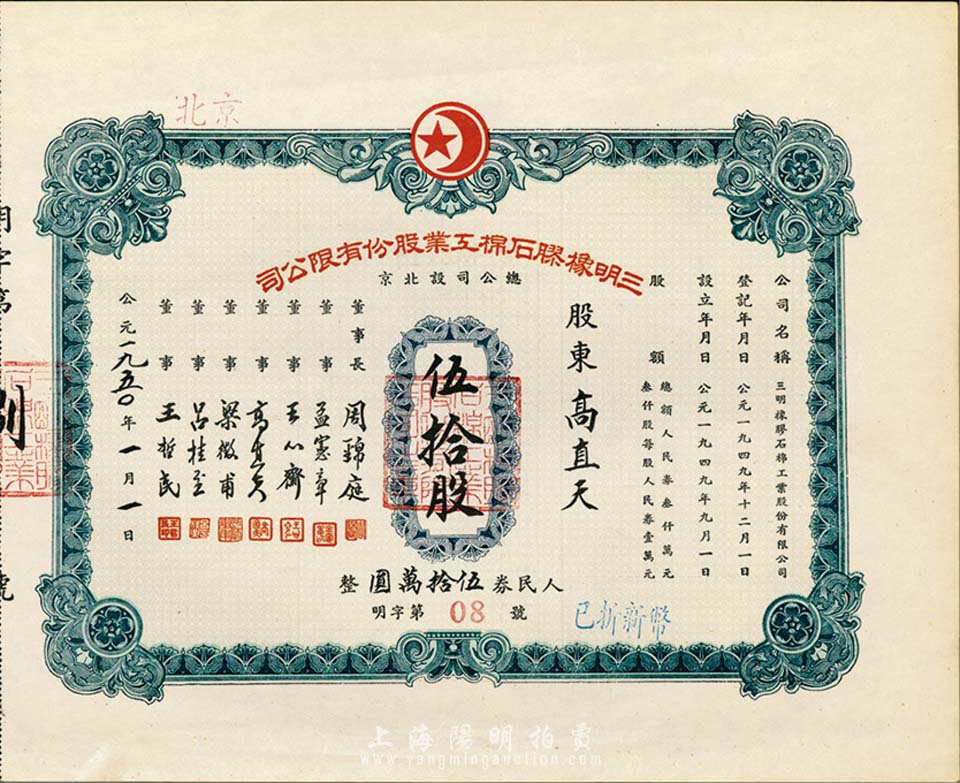 北京
三明橡膠石棉工業股份有限公司
總公司設北京
公司名稱 三明橡膠石棉工業股份有限公司
登記年月日 公元一九四九年十二月一日
設立年月日 公元一九四九年九月一日
股額 總額人民券叁仟萬元
叁仟股每股人民券壹萬元
股東 高直天
伍拾股
人民券伍拾萬圓整
明字第 08 號
已折新幣
董事長 周錦庭
董事 孟憲章
董事 王心齋
董事 高直天
董事 梁徵甫
董事 呂桂笙
董事 王哲民
公元一九五〇年一月一日
上海陽明拍賣
www.yangmingauction.com